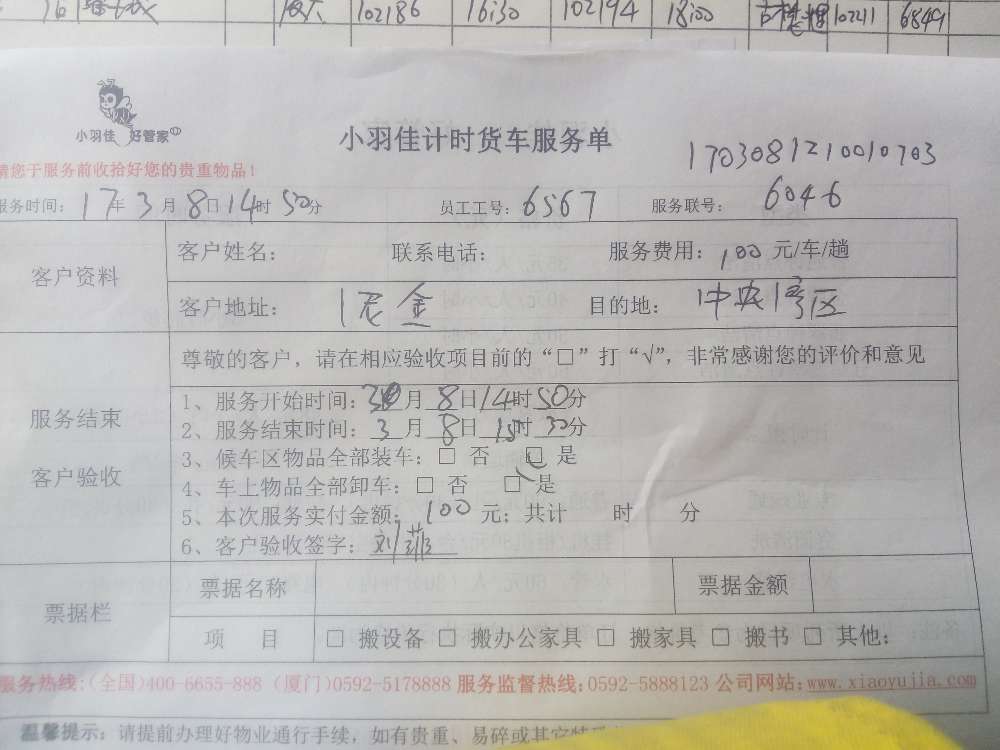 16 102186 16:30 102194 18:00 102211 6849
小羽佳 好管家
小羽佳计时货车服务单
1703081210010703
请您于服务前收拾好您的贵重物品！
服务时间：17年3月8日14时50分 员工工号：6567 服务联号：6046
客户资料
客户姓名： 联系电话： 服务费用：100元/车/趟
客户地址： 目的地：中央湾区
服务结束
客户验收
尊敬的客户，请在相应验收项目前的“□”打“√”，非常感谢您的评价和意见
1、服务开始时间：3月8日14时50分
2、服务结束时间：3月8日15时30分
3、候车区物品全部装车：□ 否 □ 是
4、车上物品全部卸车：□ 否 □ 是
5、本次服务实付金额：100元；共计 时 分
6、客户验收签字：刘菲
票据栏
票据名称 票据金额
项 目 □ 搬设备 □ 搬办公家具 □ 搬家具 □ 搬书 □ 其他：
服务热线:(全国)400-6655-888 (厦门)0592-5178888 服务监督热线:0592-5888123 公司网站:www.xiaoyujia.com
温馨提示：请提前办理好物业通行手续，如有贵重、易碎或其它特